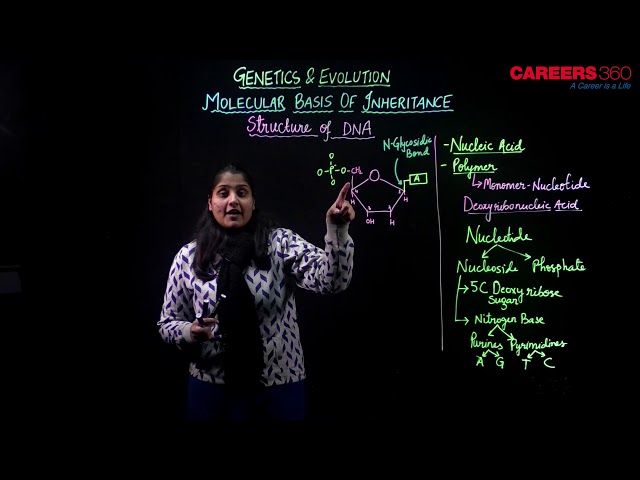 CAREERS360
A Career is a Life
GENETICS & EVOLUTION
MOLECULAR BASIS OF INHERITANCE
Structure of DNA
N-Glycosidic
Bond
O
O-P-O-CH₂
O
O
A
H
H
OH
H
- Nucleic Acid
- Polymer
Monomer-Nucleotide
Deoxyribonucleic Acid
Nucleotide
Nucleoside Phosphate
5C Deoxyribose
Sugar
Nitrogen Base
Purines Pyrimidines
A G T C